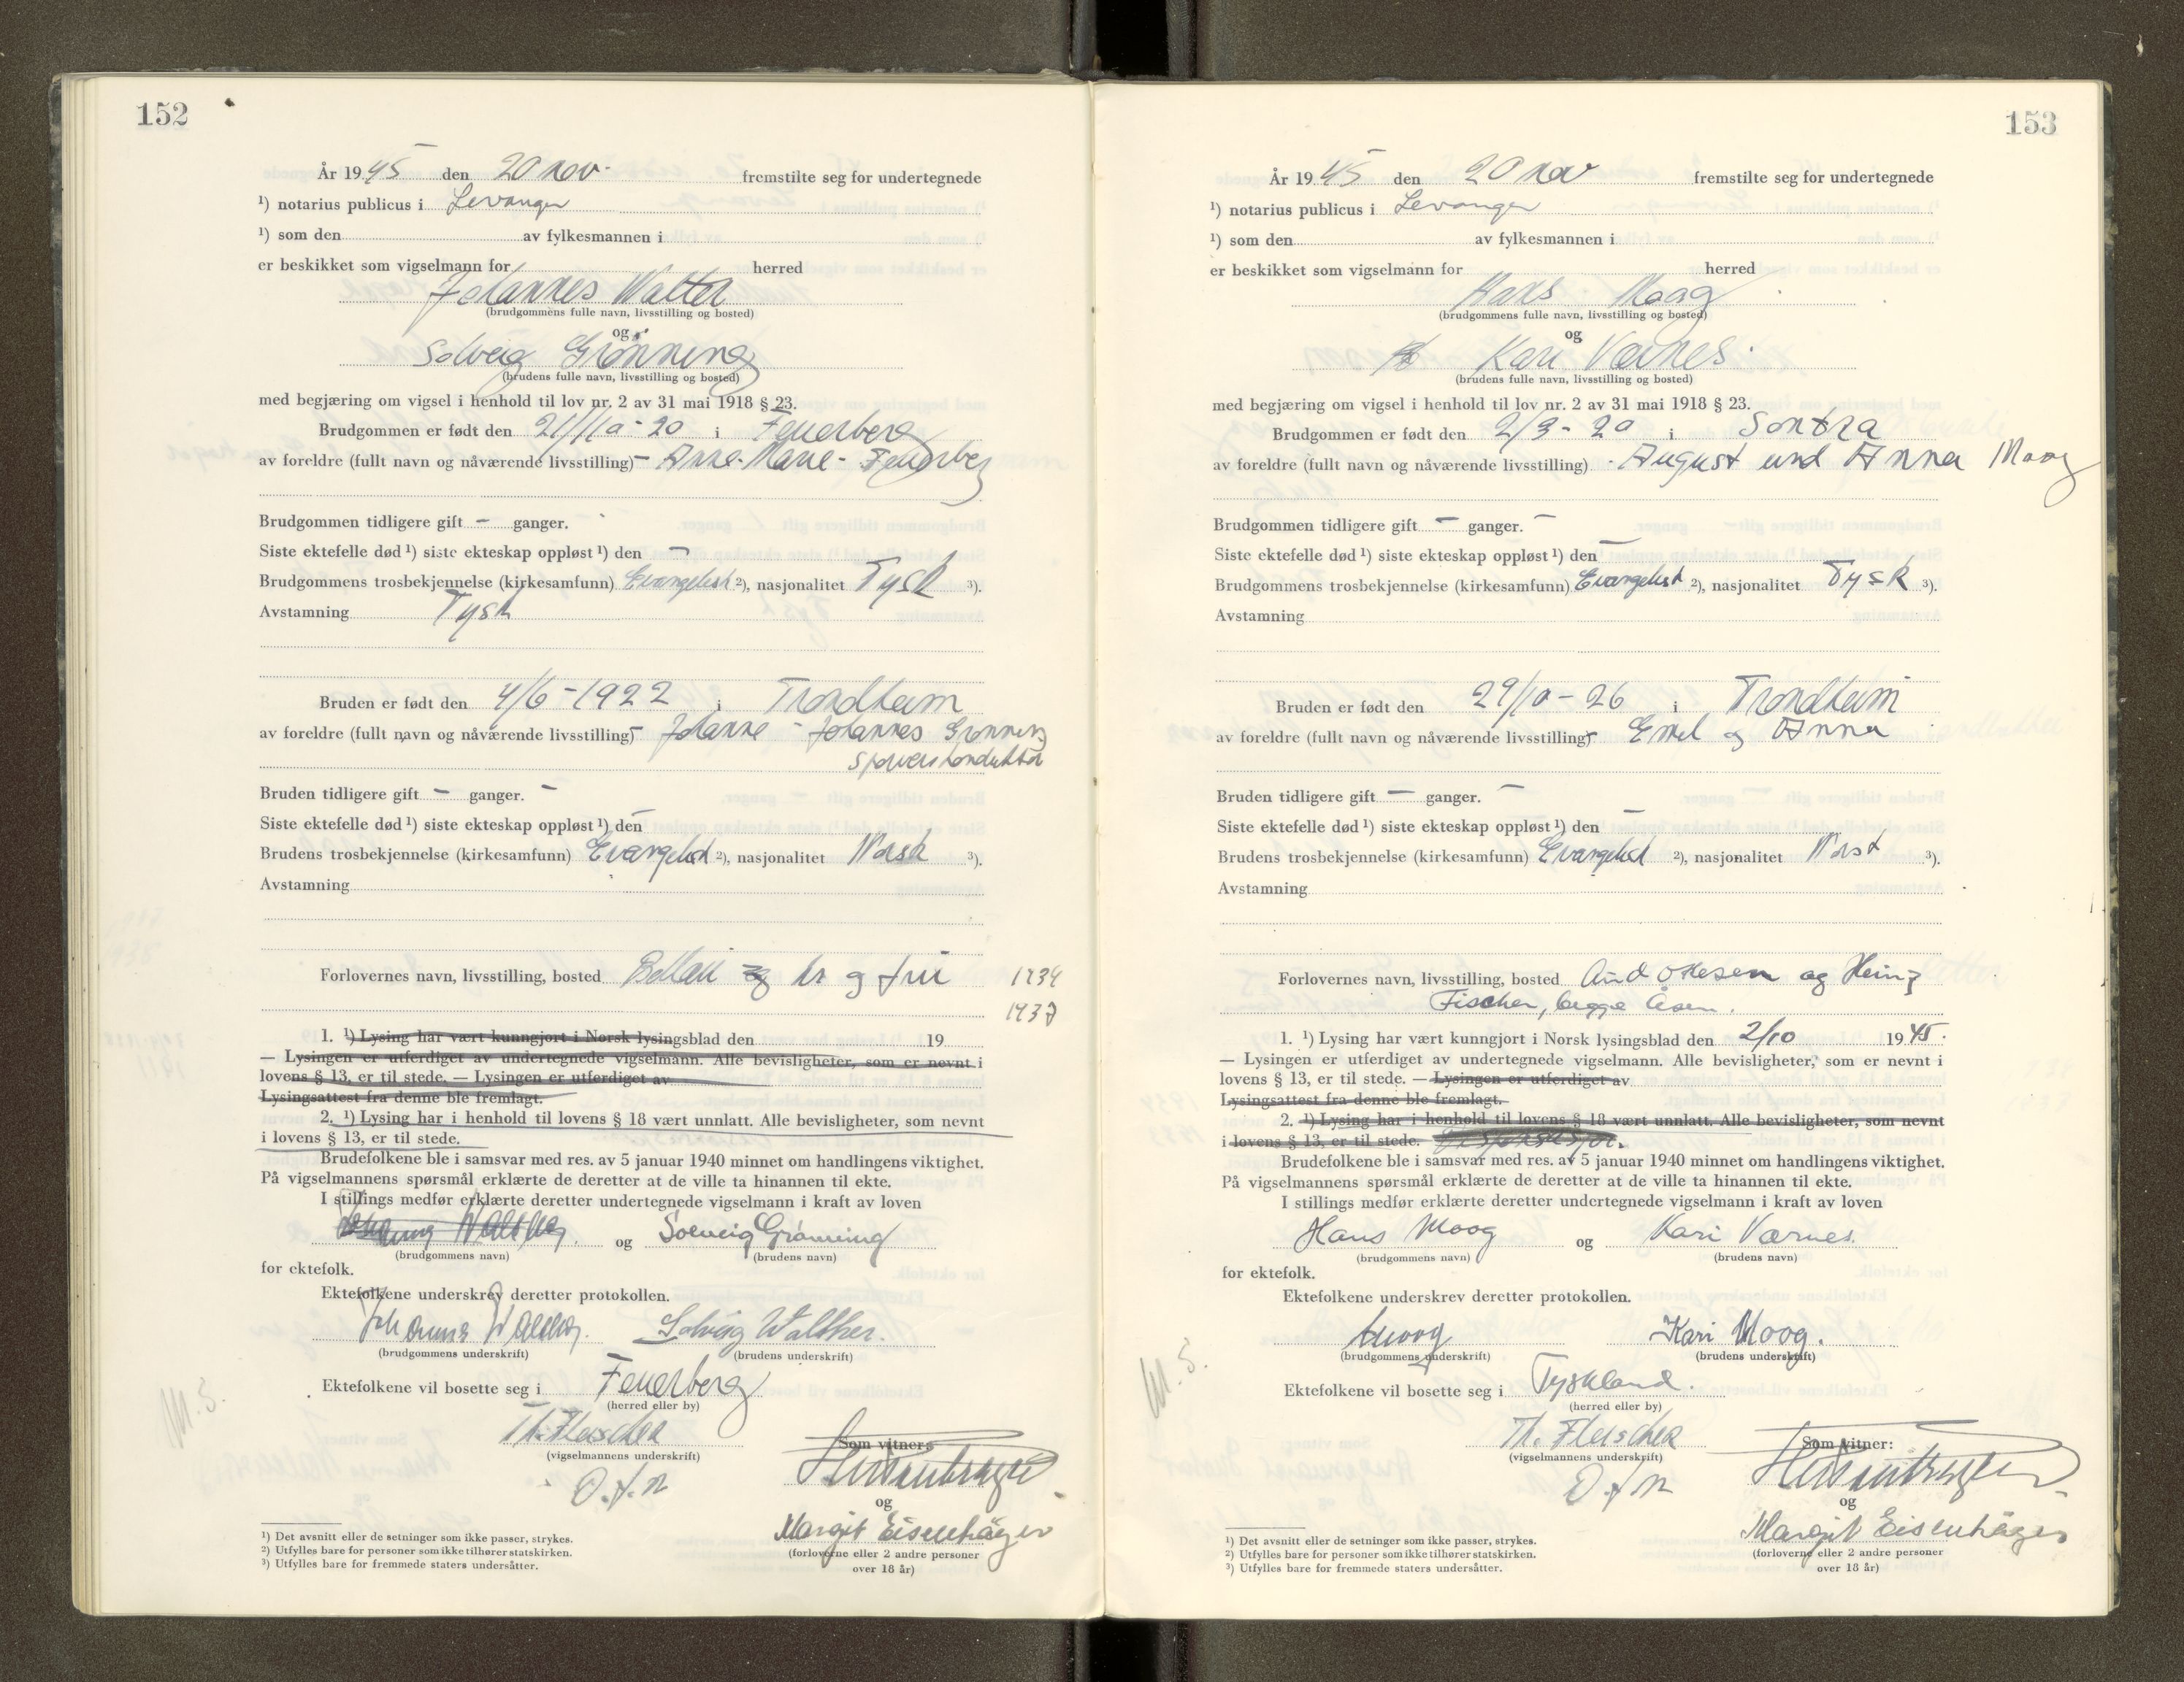 152
År 1945 den 20 nov. fremstilte seg for undertegnede
¹) notarius publicus i Levanger
¹) som den av fylkesmannen i
er beskikket som vigselmann for herred
Johannes Walter
(brudgommens fulle navn, livsstilling og bosted)
og
Solveig Grønning
(brudens fulle navn, livsstilling og bosted)
med begjæring om vigsel i henhold til lov nr. 2 av 31 mai 1918 § 23.
Brudgommen er født den 20 i Feuerberg
av foreldre (fullt navn og nåværende livsstilling) - Anne-Marie - Feuerberg
Brudgommen tidligere gift - ganger.
Siste ektefelle død ¹) siste ekteskap oppløst ¹) den -
Brudgommens trosbekjennelse (kirkesamfunn) Evangelisk ²), nasjonalitet Tysk ³).
Avstamning Tysk
Bruden er født den 4/6-1922 i Trondheim
av foreldre (fullt navn og nåværende livsstilling) - Johanne - Johannes Grønning
Bruden tidligere gift - ganger. -
Siste ektefelle død ¹) siste ekteskap oppløst ¹) den -
Brudens trosbekjennelse (kirkesamfunn) Evangelisk ²), nasjonalitet Norsk ³).
Avstamning
Forlovernes navn, livsstilling, bosted hr og fru 1934
1937
1. ¹) Lysing har vært kunngjort i Norsk lysingsblad den 19
— Lysingen er utferdiget av undertegnede vigselmann. Alle bevisligheter, som er nevnt i
lovens § 13, er til stede. — Lysingen er utferdiget av
Lysingsattest fra denne ble fremlagt.
2. ¹) Lysing har i henhold til lovens § 18 vært unnlatt. Alle bevisligheter, som nevnt
i lovens § 13, er til stede.
Brudefolkene ble i samsvar med res. av 5 januar 1940 minnet om handlingens viktighet.
På vigselmannens spørsmål erklærte de deretter at de ville ta hinannen til ekte.
I stillings medfør erklærte deretter undertegnede vigselmann i kraft av loven
og Solveig Grønning
(brudgommens navn) (brudens navn)
for ektefolk.
Ektefolkene underskrev deretter protokollen.
Solveig Walther.
(brudgommens underskrift) (brudens underskrift)
Ektefolkene vil bosette seg i Feuerberg
(herred eller by)
Th. Fleischer
(vigselmannens underskrift)
O.f.n
Som vitner:
og
Margit Eisenhäger
(forloverne eller 2 andre personer
over 18 år)
M.S.
¹) Det avsnitt eller de setninger som ikke passer, strykes.
²) Utfylles bare for personer som ikke tilhører statskirken.
³) Utfylles bare for fremmede staters undersåtter.
153
År 1945 den 20 nov fremstilte seg for undertegnede
¹) notarius publicus i Levanger
¹) som den av fylkesmannen i
er beskikket som vigselmann for herred
Hans Moog
(brudgommens fulle navn, livsstilling og bosted)
og
Kari Værnes.
(brudens fulle navn, livsstilling og bosted)
med begjæring om vigsel i henhold til lov nr. 2 av 31 mai 1918 § 23.
Brudgommen er født den 2/3-20 i Sontra
av foreldre (fullt navn og nåværende livsstilling) - August und Anna Moog
Brudgommen tidligere gift - ganger. -
Siste ektefelle død ¹) siste ekteskap oppløst ¹) den -
Brudgommens trosbekjennelse (kirkesamfunn) Evangelisk ²), nasjonalitet Tysk ³).
Avstamning
Bruden er født den 29/10-26 i Trondheim
av foreldre (fullt navn og nåværende livsstilling) - Emil og Anna
Bruden tidligere gift - ganger. -
Siste ektefelle død ¹) siste ekteskap oppløst ¹) den -
Brudens trosbekjennelse (kirkesamfunn) Evangelisk ²), nasjonalitet Norsk ³).
Avstamning
Forlovernes navn, livsstilling, bosted og Heinz
Fischer, begge Åsen.
1. ¹) Lysing har vært kunngjort i Norsk lysingsblad den 2/10 1945.
— Lysingen er utferdiget av undertegnede vigselmann. Alle bevisligheter, som er nevnt i
lovens § 13, er til stede. — Lysingen er utferdiget av
Lysingsattest fra denne ble fremlagt.
2. ¹) Lysing har i henhold til lovens § 18 vært unnlatt. Alle bevisligheter, som nevnt
i lovens § 13, er til stede.
Brudefolkene ble i samsvar med res. av 5 januar 1940 minnet om handlingens viktighet.
På vigselmannens spørsmål erklærte de deretter at de ville ta hinannen til ekte.
I stillings medfør erklærte deretter undertegnede vigselmann i kraft av loven
Hans Moog og Kari Værnes.
(brudgommens navn) (brudens navn)
for ektefolk.
Ektefolkene underskrev deretter protokollen.
Kari Moog.
(brudgommens underskrift) (brudens underskrift)
Ektefolkene vil bosette seg i Tyskland.
(herred eller by)
Th. Fleischer
(vigselmannens underskrift)
O.f.n
Som vitner:
og
Margit Eisenhäger
(forloverne eller 2 andre personer
over 18 år)
M.S.
¹) Det avsnitt eller de setninger som ikke passer, strykes.
²) Utfylles bare for personer som ikke tilhører statskirken.
³) Utfylles bare for fremmede staters undersåtter.